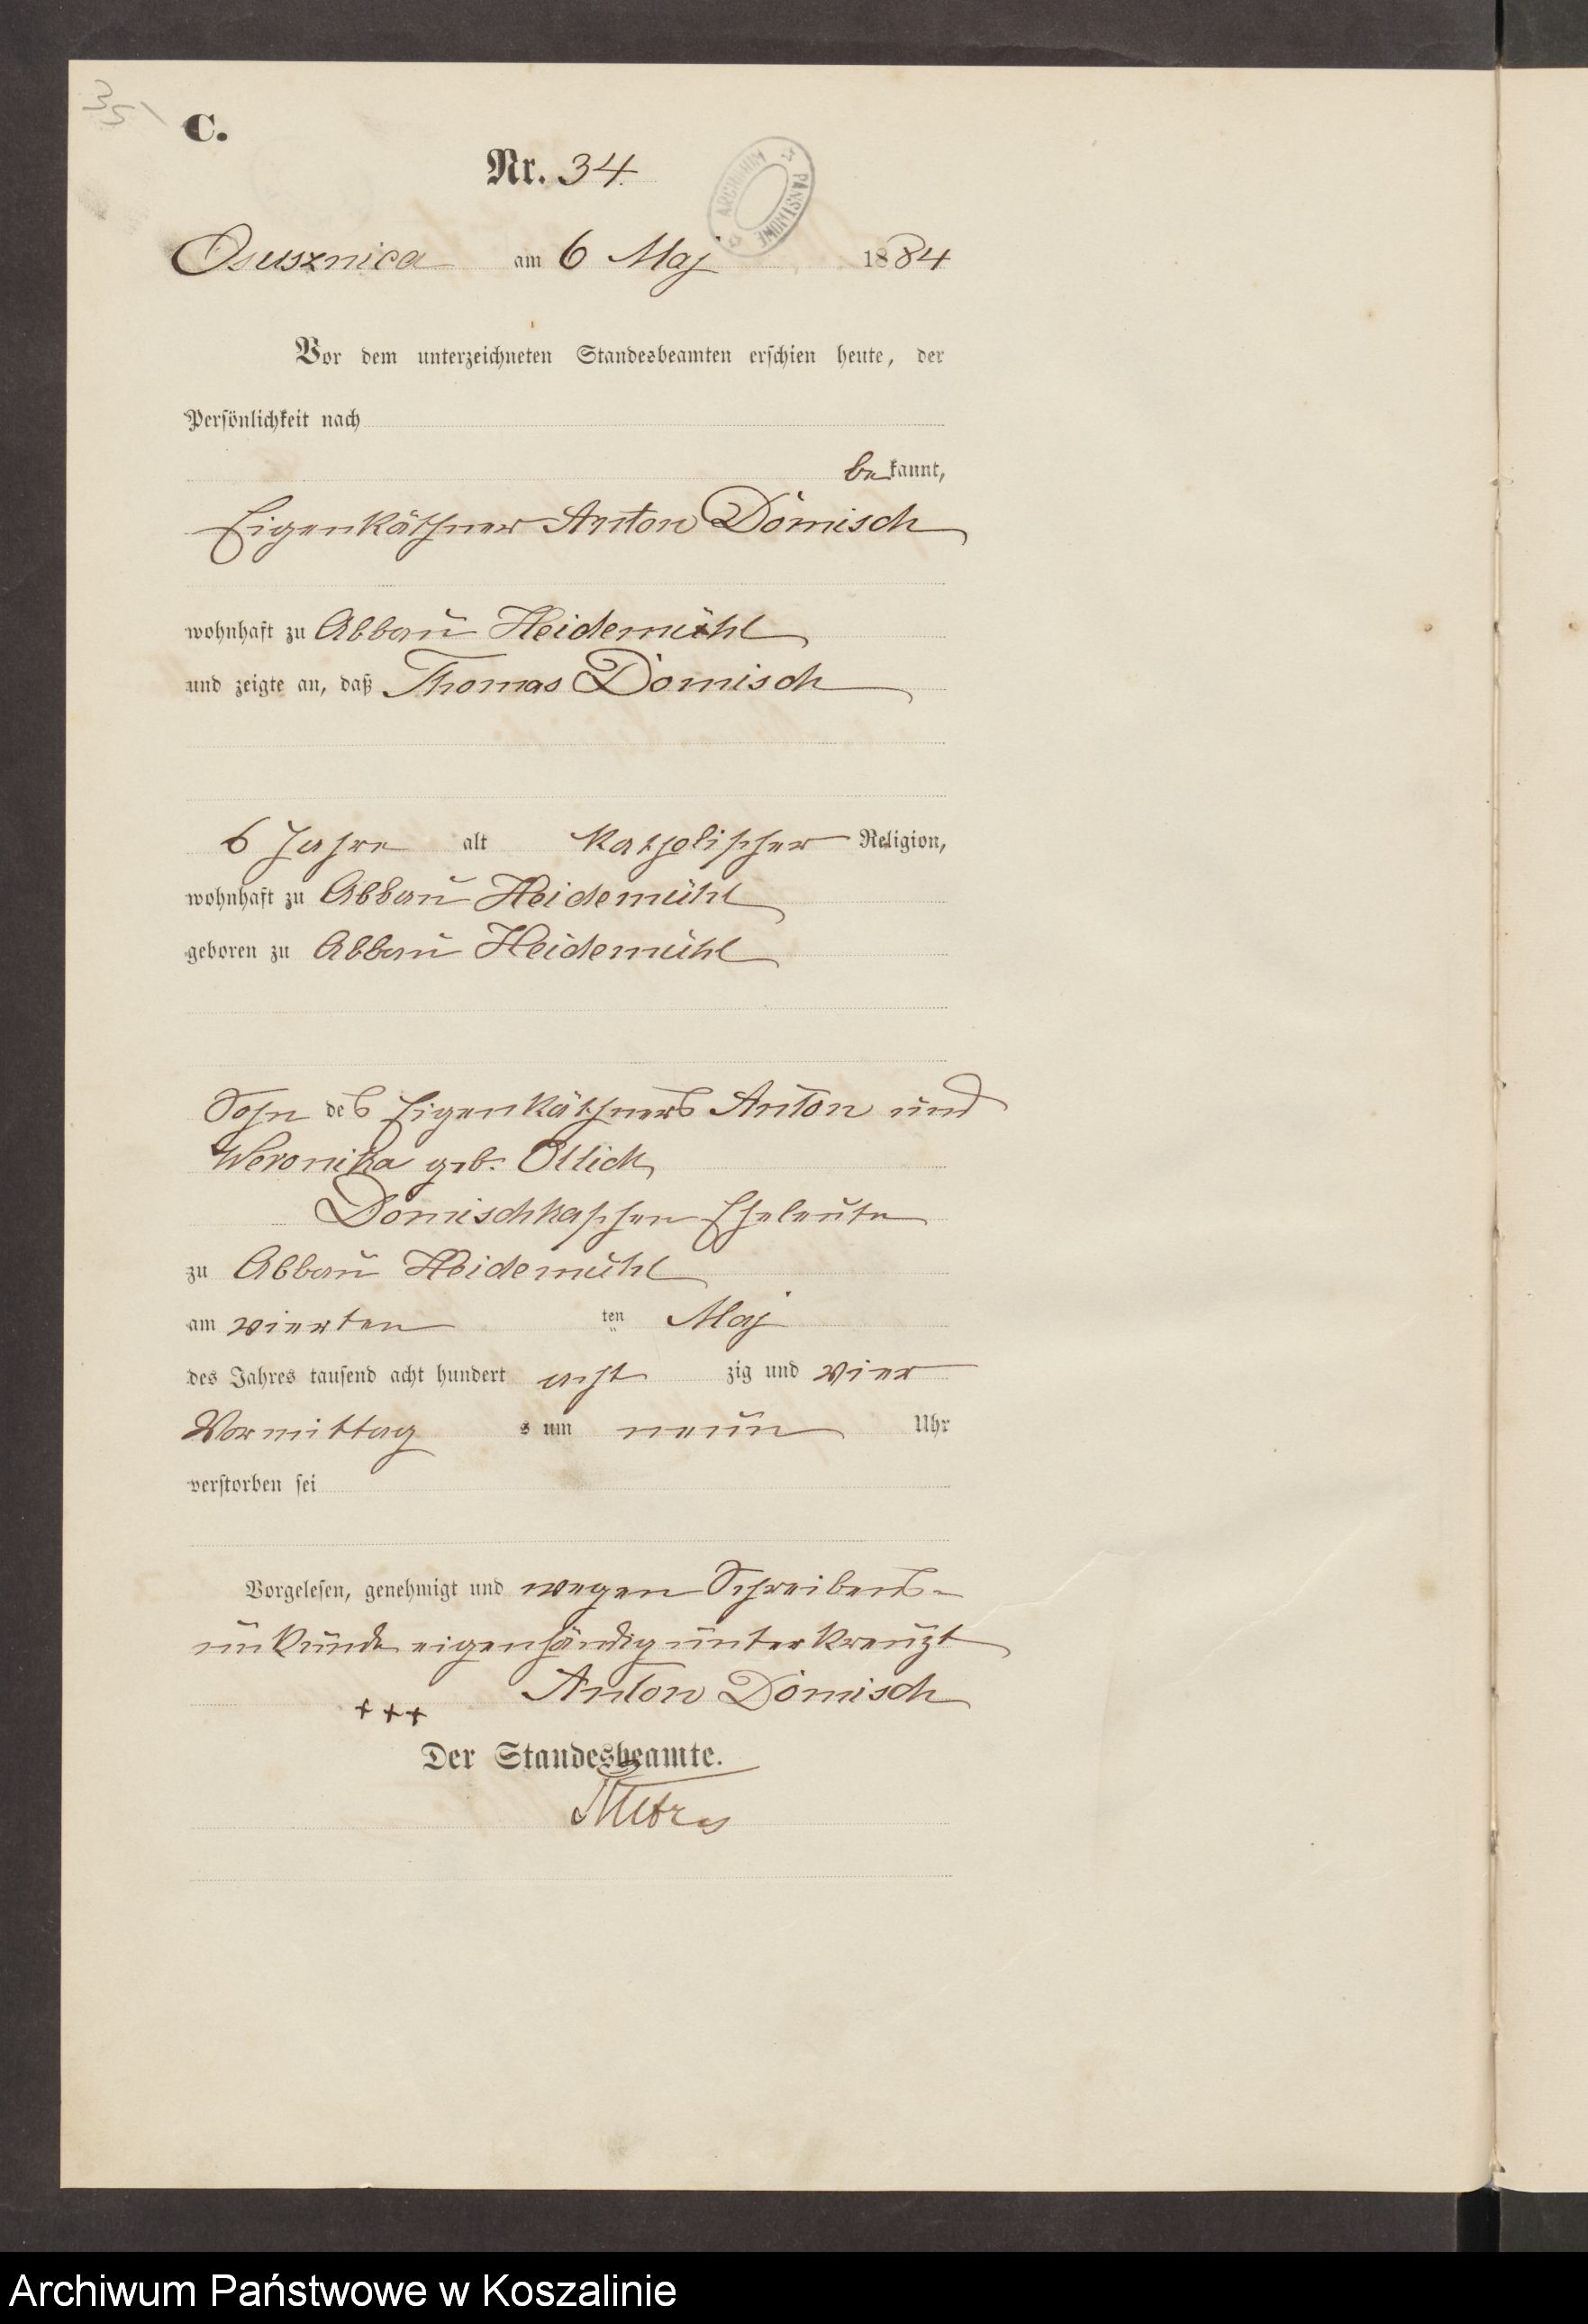 35
C.
Nr. 34.
ARCHIWUM PAŃSTWOWE
Osusznica am 6 Maj 1884
Vor dem unterzeichneten Standesbeamten erschien heute, der
Persönlichkeit nach
bekannt,
Eigenkäthner Anton Domisch
wohnhaft zu Abbau Heidemühl
und zeigte an, daß Thomas Domisch
6 Jahre alt katholischer Religion,
wohnhaft zu Abbau Heidemühl
geboren zu Abbau Heidemühl
Sohn des Eigenkäthners Anton und
Weronika geb. Ollick
Domischkaschen Eheleute
zu Abbau Heidemühl
am vierten ten Maj
des Jahres tausend acht hundert acht zig und vier
Vormittag s um neun Uhr
verstorben sei
Vorgelesen, genehmigt und wegen Schreibens-
unkunde eigenhändig unterkreuzt
+++ Anton Domisch
Der Standesbeamte.
Archiwum Państwowe w Koszalinie